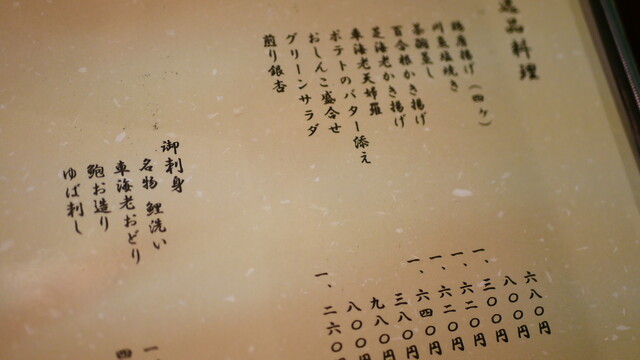 品料理
唐揚げ（四ヶ）
川魚塩焼き
茶碗蒸し
百合根かき揚げ
芝海老かき揚げ
車海老天婦羅
ポテトのバター添え
おしんこ盛合せ
グリーンサラダ
煎り銀杏
六八〇円
八〇〇円
一、三〇〇円
一、六二〇円
一、六二〇円
一、六四〇円
三八〇円
九八〇円
八〇〇円
一、二六〇円
御刺身
名物 鯉洗い
車海老おどり
鮑お造り
ゆば刺し